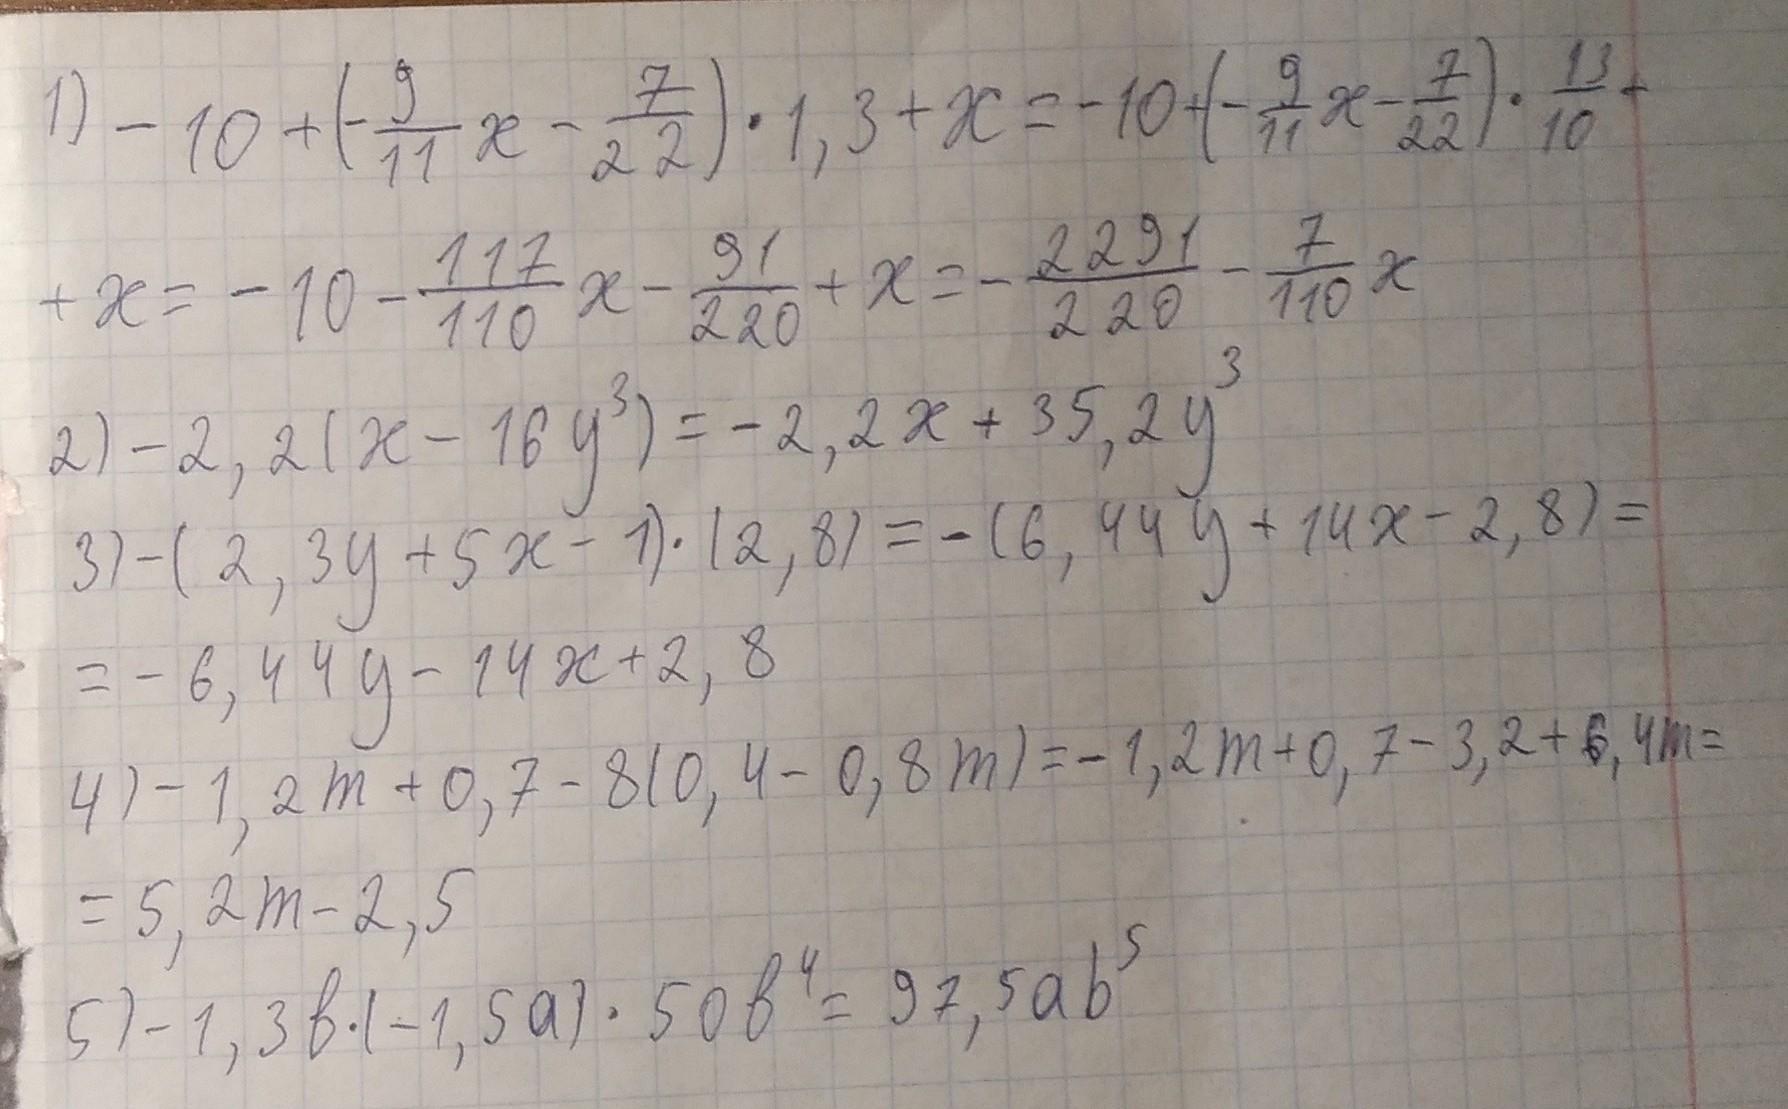 1) -10+(-9/11x-7/22)·1,3+x=-10+(-9/11x-7/22)·13/10+
+x=-10-117/110x-91/220+x=-2291/220-7/110x
2) -2,2(x-16y³)=-2,2x+35,2y³
3) -(2,3y+5x-1)·(2,8)=-(6,44y+14x-2,8)=
=-6,44y-14x+2,8
4) -1,2m+0,7-8(0,4-0,8m)=-1,2m+0,7-3,2+6,4m=
=5,2m-2,5
5) -1,3b·(-1,5a)·50b⁴=97,5ab⁵